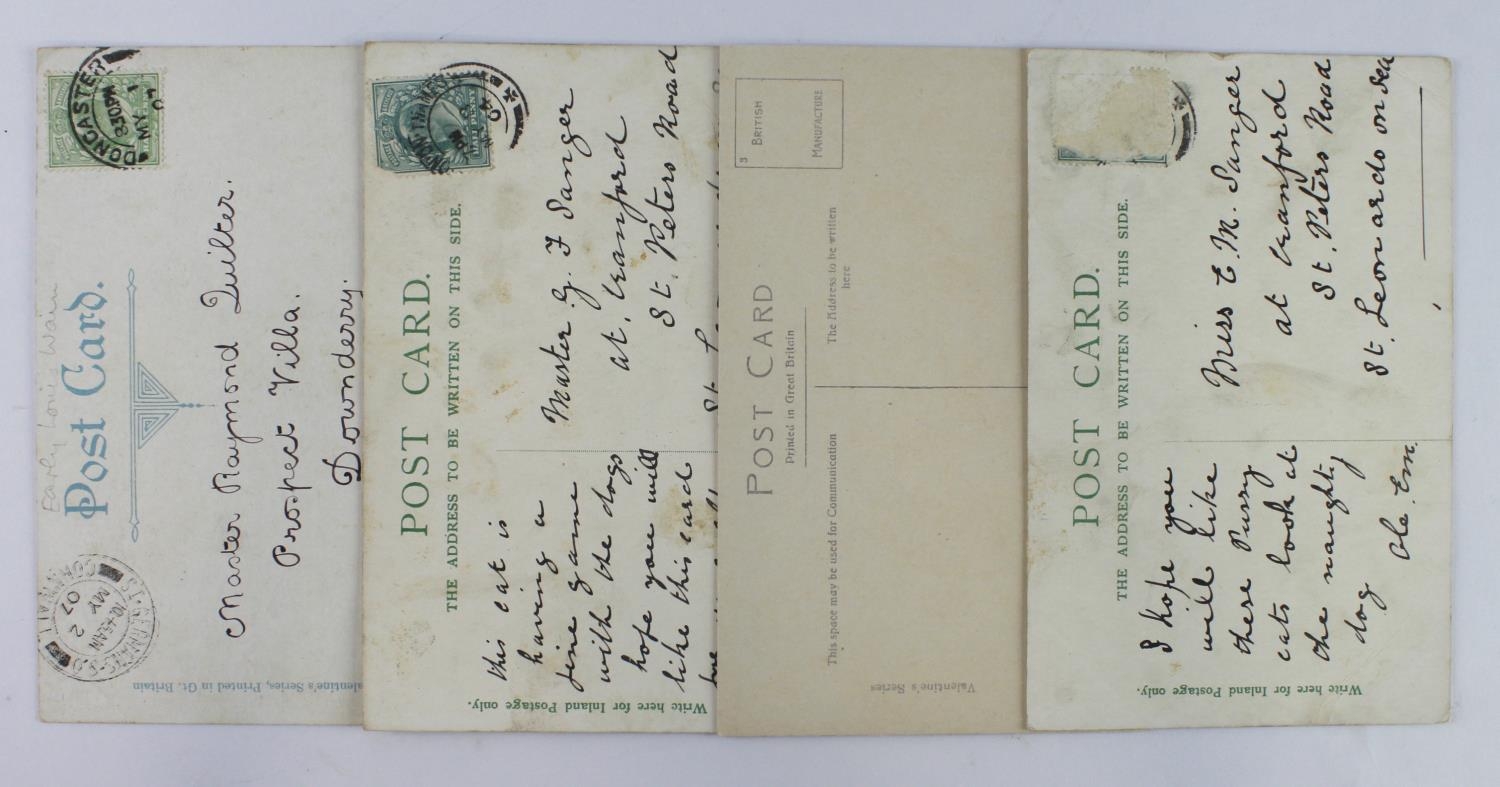 Early Louis Wain
Post Card.
DONCASTER
8 30PM
MY 1
07
Master Raymond Quilter.
Prospect Villa.
Downderry.
ST. GERMANS S.O
10.45AM
MY 2
07
CORNWALL
Valentine's Series, Printed in Gt. Britain
POST CARD.
THE ADDRESS TO BE WRITTEN ON THIS SIDE.
Master G. F Sanger
at, Cranford
St. Peters Road
this cat is
having a
fine game
with the dogs
hope you will
like this card
Write here for Inland Postage only.
3 BRITISH
MANUFACTURE
POST CARD
Printed in Great Britain
The Address to be written
here
This space may be used for Communication
Valentine's Series
POST CARD.
THE ADDRESS TO BE WRITTEN ON THIS SIDE.
Miss E. M. Sanger
at Cranford
St. Peters Road
St. Leonards on sea
I hope you
will like
these Pussy
cats look at
the naughty
dog
Write here for Inland Postage only.